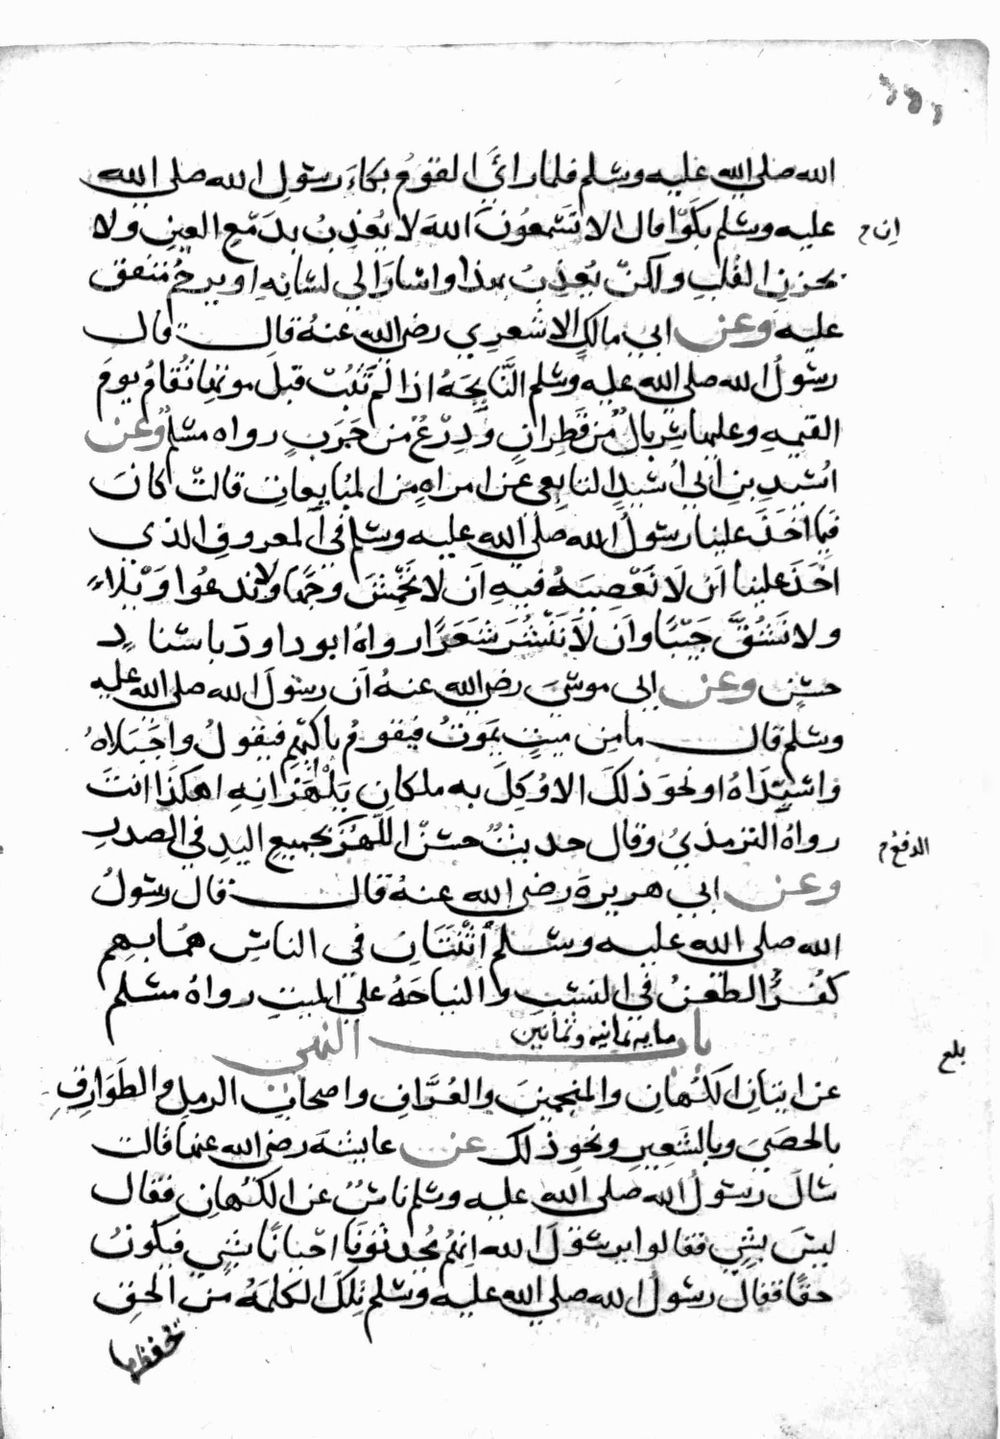 الله صلى الله عليه وسلم فلما رأى القوم بكاء رسول الله صلى الله
عليه وسلم بكوا فقال الا تسمعون الله لا يعذب بدمع العين ولا
ان
بحزن القلب ولكن يعذب بهذا واشار الى لسانه او يرحم متفق
عليه وعن ابي مالك الاشعري رضي الله عنه قال قال
رسول الله صلى الله عليه وسلم النايحة اذا لم تتب قبل موتها تقام يوم
القيمه وعليها سربال من قطران ودرع من جرب رواه مسلم وعن
اسيد بن ابي اسيد التابعي عن امراه من المبايعات قالت كان
فيما اخذ علينا رسول الله صلى الله عليه وسلم في المعروف الذي
اخذ علينا ان لا نعصيه فيه ان لا نخمش وجها ولا ندعوا ويلا
ولا نشق جيبا وان لا ننشر شعرا رواه ابو داود باسناد
حسن وعن ابى موسى رضي الله عنه ان رسول الله صلى الله عليه
وسلم قال ما من ميت يموت فيقوم باكيهم فيقول واجبلاه
واسيداه او نحو ذلك الا وكل به ملكان يلهزانه اهكذا انت
رواه الترمذي وقال حديث حسن اللهز بجميع اليد في الصدر
الدفع
وعن ابي هريرة رضي الله عنه قال قال رسول
الله صلى الله عليه وسلم اثنتان في الناس هما بهم
كفر الطعن في النسب والنياحة على الميت رواه مسلم
باب مايه ثمانيه وثمانين النهي
بلغ
عن اتيان الكهان والمنجمين والعراف واصحاب الرمل والطوارق
بالحصى وبالشعير ونحو ذلك عن عايشة رضي الله عنها قالت
سال رسول الله صلى الله عليه وسلم ناس عن الكهان فقال
ليس بشي فقالوا يرسول الله انهم يحدثونا احيانا بشي فيكون
حقا فقال رسول الله صلى الله عليه وسلم تلك الكلمة من الحق
يخطفها